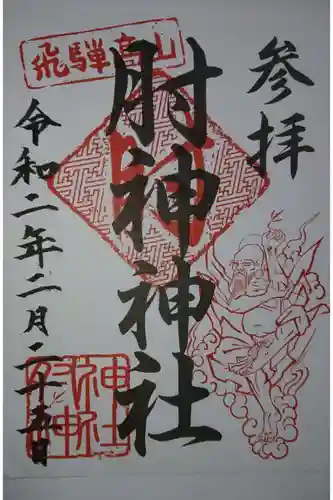 飛騨高山
参拝
肘神神社
令和二年二月二十五日
肘神
神社